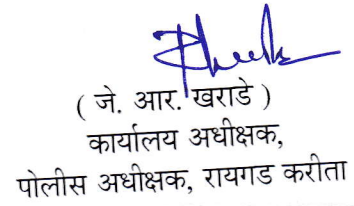 ( जे. आर. खराडे )
कार्यालय अधीक्षक,
पोलीस अधीक्षक, रायगड करीता